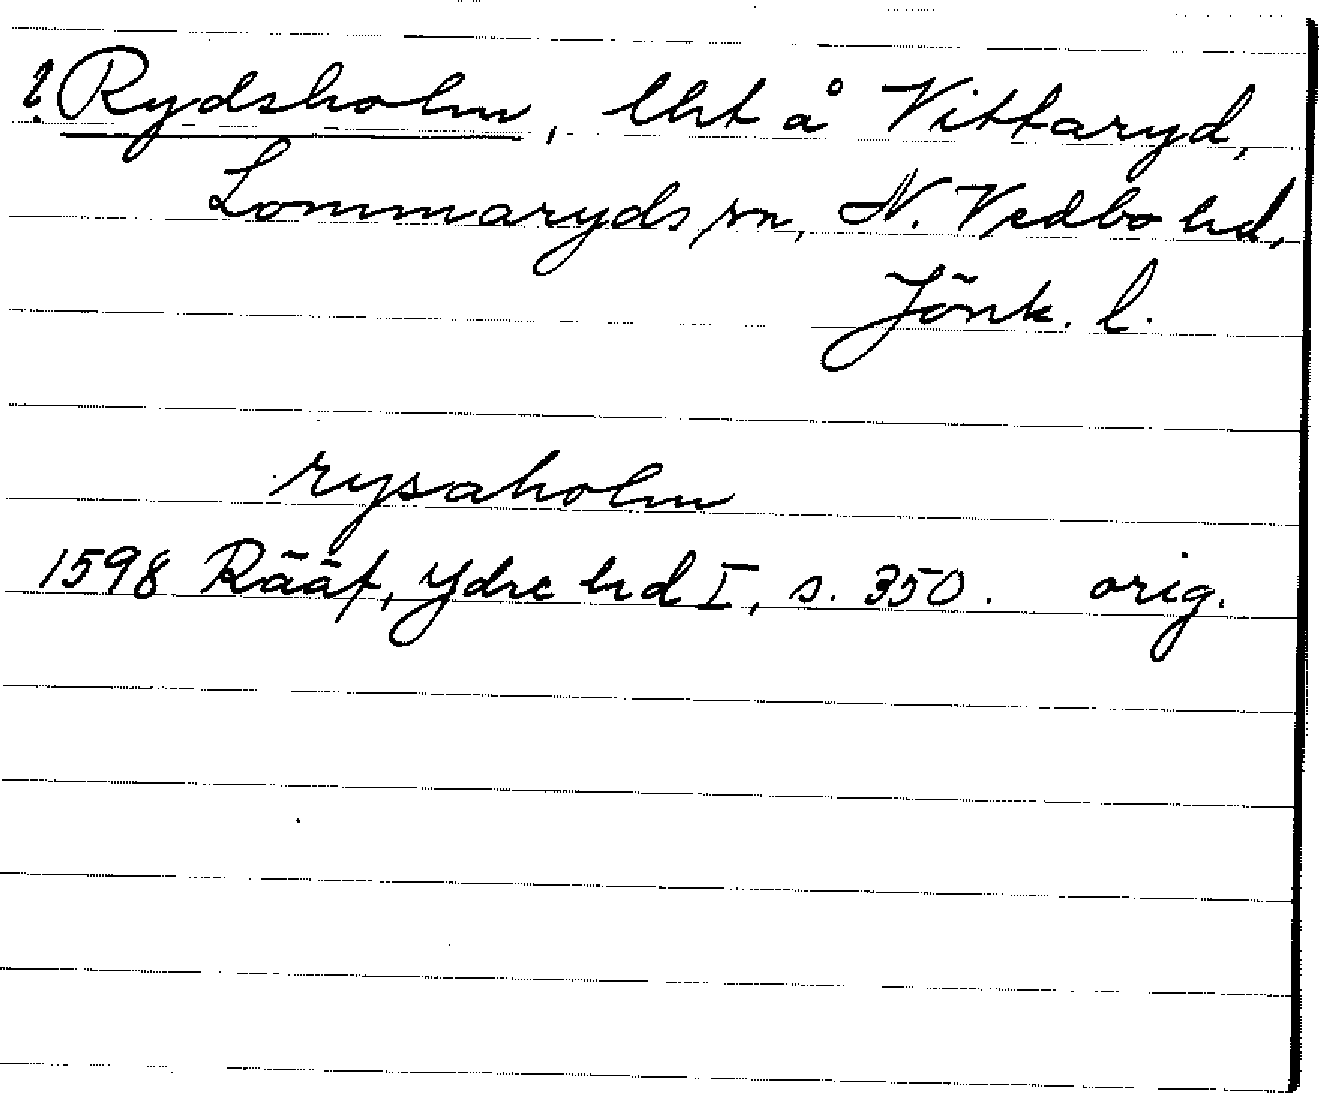 ? Rydsholm, lht å Vittaryd,
Lommaryds sn, N. Vedbo hd,
Jönk. l.
rysaholm
1598 Rääf, Ydre hd I, s. 350. orig.